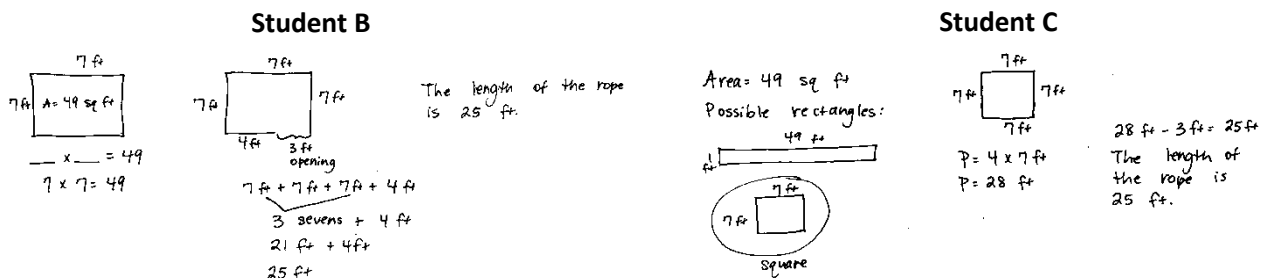 Student B
7 ft
7 ft
A= 49 sq ft
__ x __ = 49
7 x 7 = 49
7 ft
7 ft
7 ft
4 ft
3 ft
opening
7 ft + 7 ft + 7 ft + 4 ft
3 sevens + 4 ft
21 ft + 4 ft
25 ft
The length of the rope
is 25 ft.
Student C
Area= 49 sq ft
Possible rectangles:
49 ft
1 ft
7 ft
7 ft
square
7 ft
7 ft
7 ft
7 ft
P= 4 x 7 ft
P= 28 ft
28 ft - 3 ft = 25 ft
The length of
the rope is
25 ft.